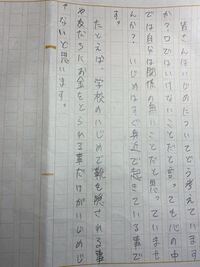 皆さんはいじめについてどう考えています
か?口ではいけないことだと言っても心の中
では自分は関係の無いことだと思っていませ
んか?いじめはすぐ身近で起きている事で
す。
たとえば、学校のいじめで靴を隠される事
や友だちにお金をとられる事だけがいじめじ
ゃないと思います。